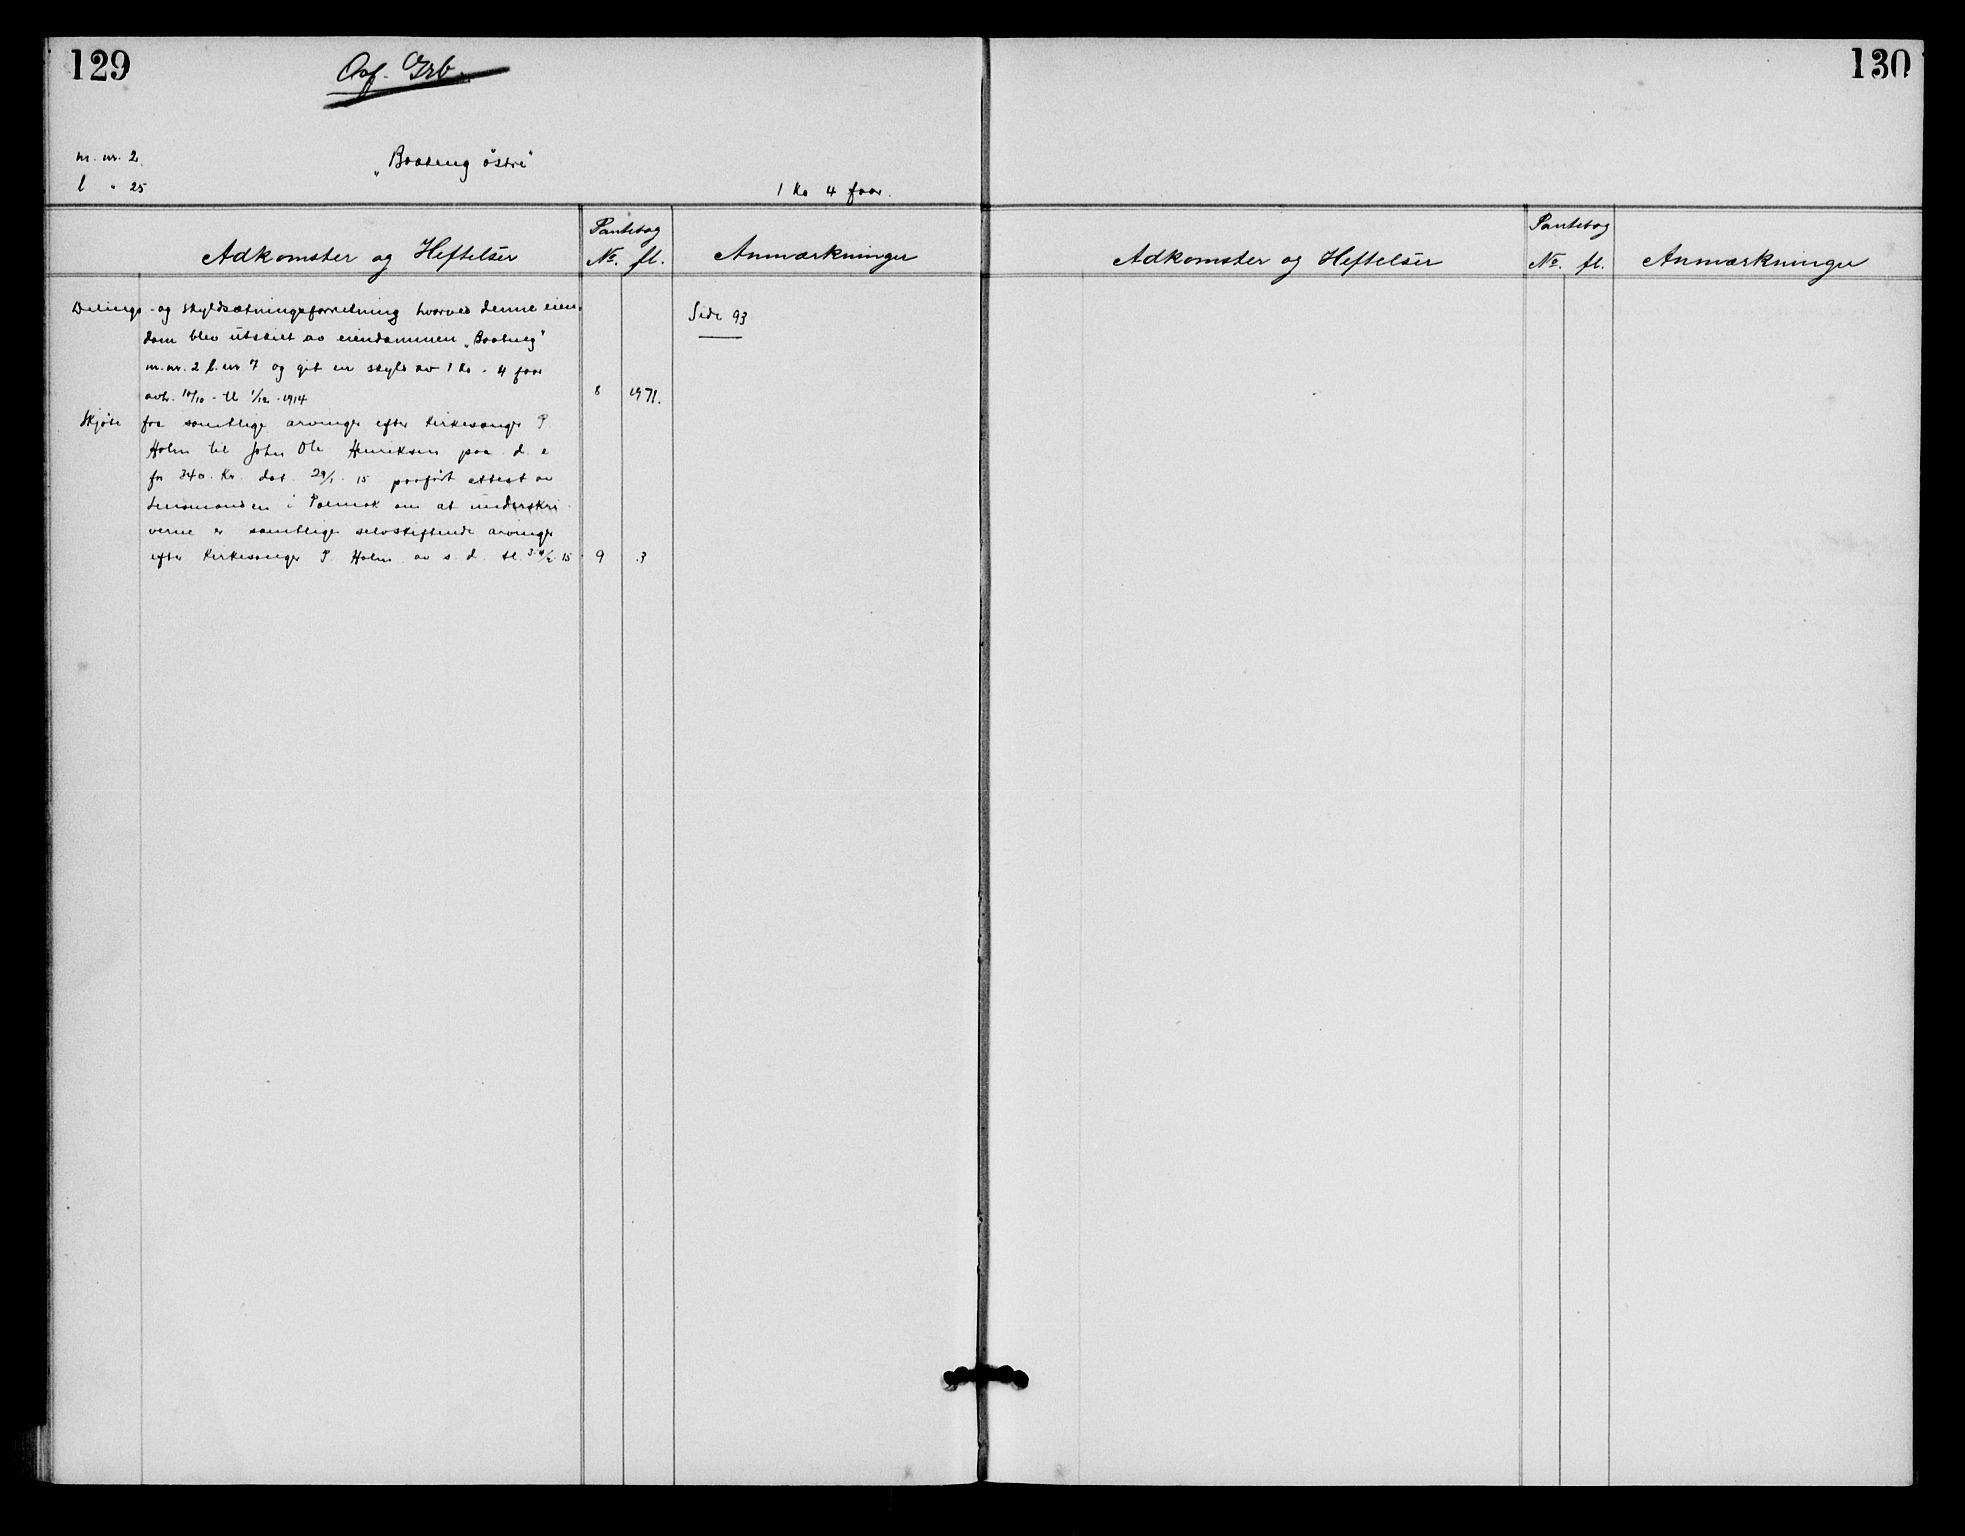 129
Ovf. Grb.
m. nr. 2
l " 25
„Baateng østre"
1 ko 4 faar.
Adkomster og Heftelser
Pantebog
No. fl.
Anmærkninger
Delings- og skyldsætningsforretning hvorved denne eien-
dom blev utskilt av eiendommen „Baateng"
m. nr. 2 l. nr 7 og git en skyld av 1 ko - 4 faar
avh. 10/10 - tl 1/12 - 1914
8
Side 93
Skjøte fra samtlige arvinger efter kirkesanger P
Holm til John Ole Henriksen paa d. e
for 340. Kr. dat. 29/1 15 paaført attest av
Lensmanden i Polmak om at underskri
verne er samtlige selvskiftende arvinger
efter kirkesanger P. Holm av s. d. tl. 15
9 3
130
Adkomster og Heftelser
Pantebog
No. fl.
Anmærkninger